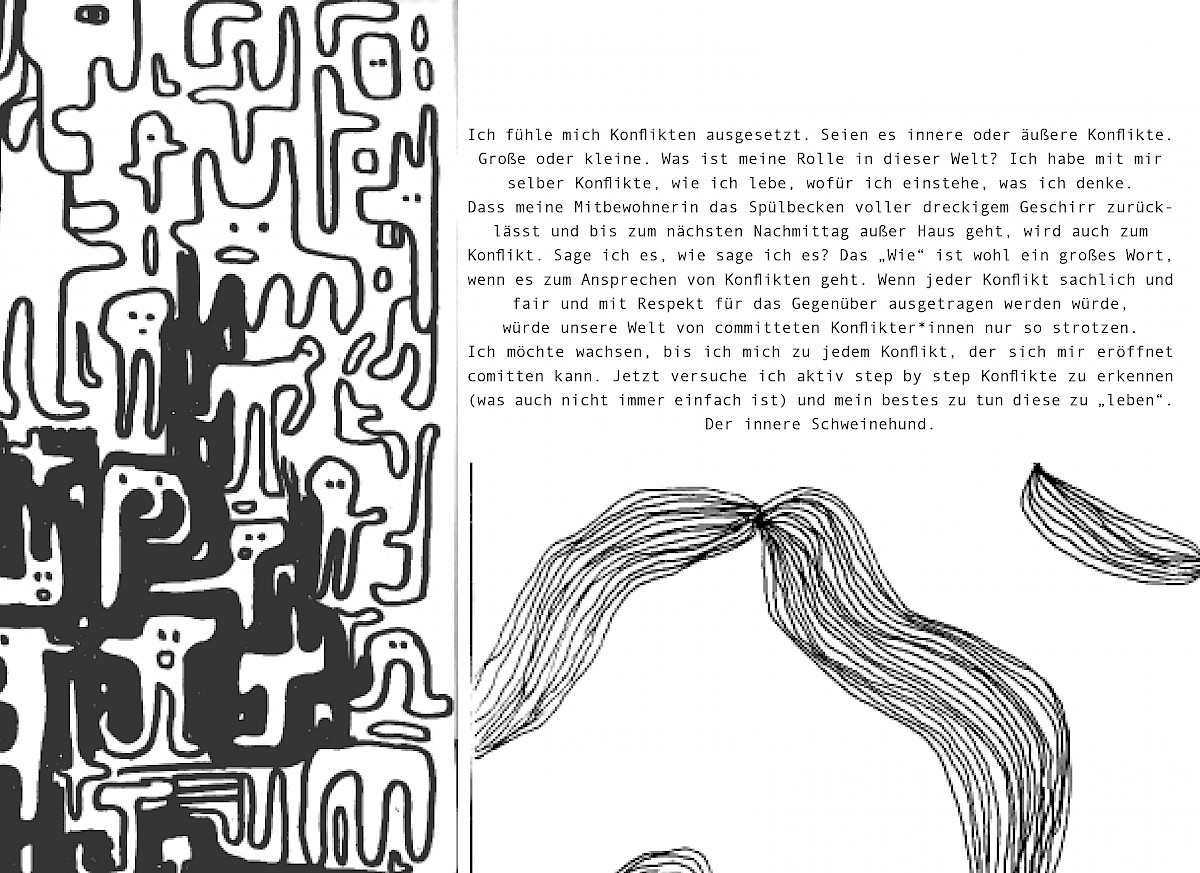 Ich fühle mich Konflikten ausgesetzt. Seien es innere oder äußere Konflikte.
Große oder kleine. Was ist meine Rolle in dieser Welt? Ich habe mit mir
selber Konflikte, wie ich lebe, wofür ich einstehe, was ich denke.
Dass meine Mitbewohnerin das Spülbecken voller dreckigem Geschirr zurück-
lässt und bis zum nächsten Nachmittag außer Haus geht, wird auch zum
Konflikt. Sage ich es, wie sage ich es? Das „Wie“ ist wohl ein großes Wort,
wenn es zum Ansprechen von Konflikten geht. Wenn jeder Konflikt sachlich und
fair und mit Respekt für das Gegenüber ausgetragen werden würde,
würde unsere Welt von committeten Konflikter*innen nur so strotzen.
Ich möchte wachsen, bis ich mich zu jedem Konflikt, der sich mir eröffnet
comitten kann. Jetzt versuche ich aktiv step by step Konflikte zu erkennen
(was auch nicht immer einfach ist) und mein bestes zu tun diese zu „leben“.
Der innere Schweinehund.